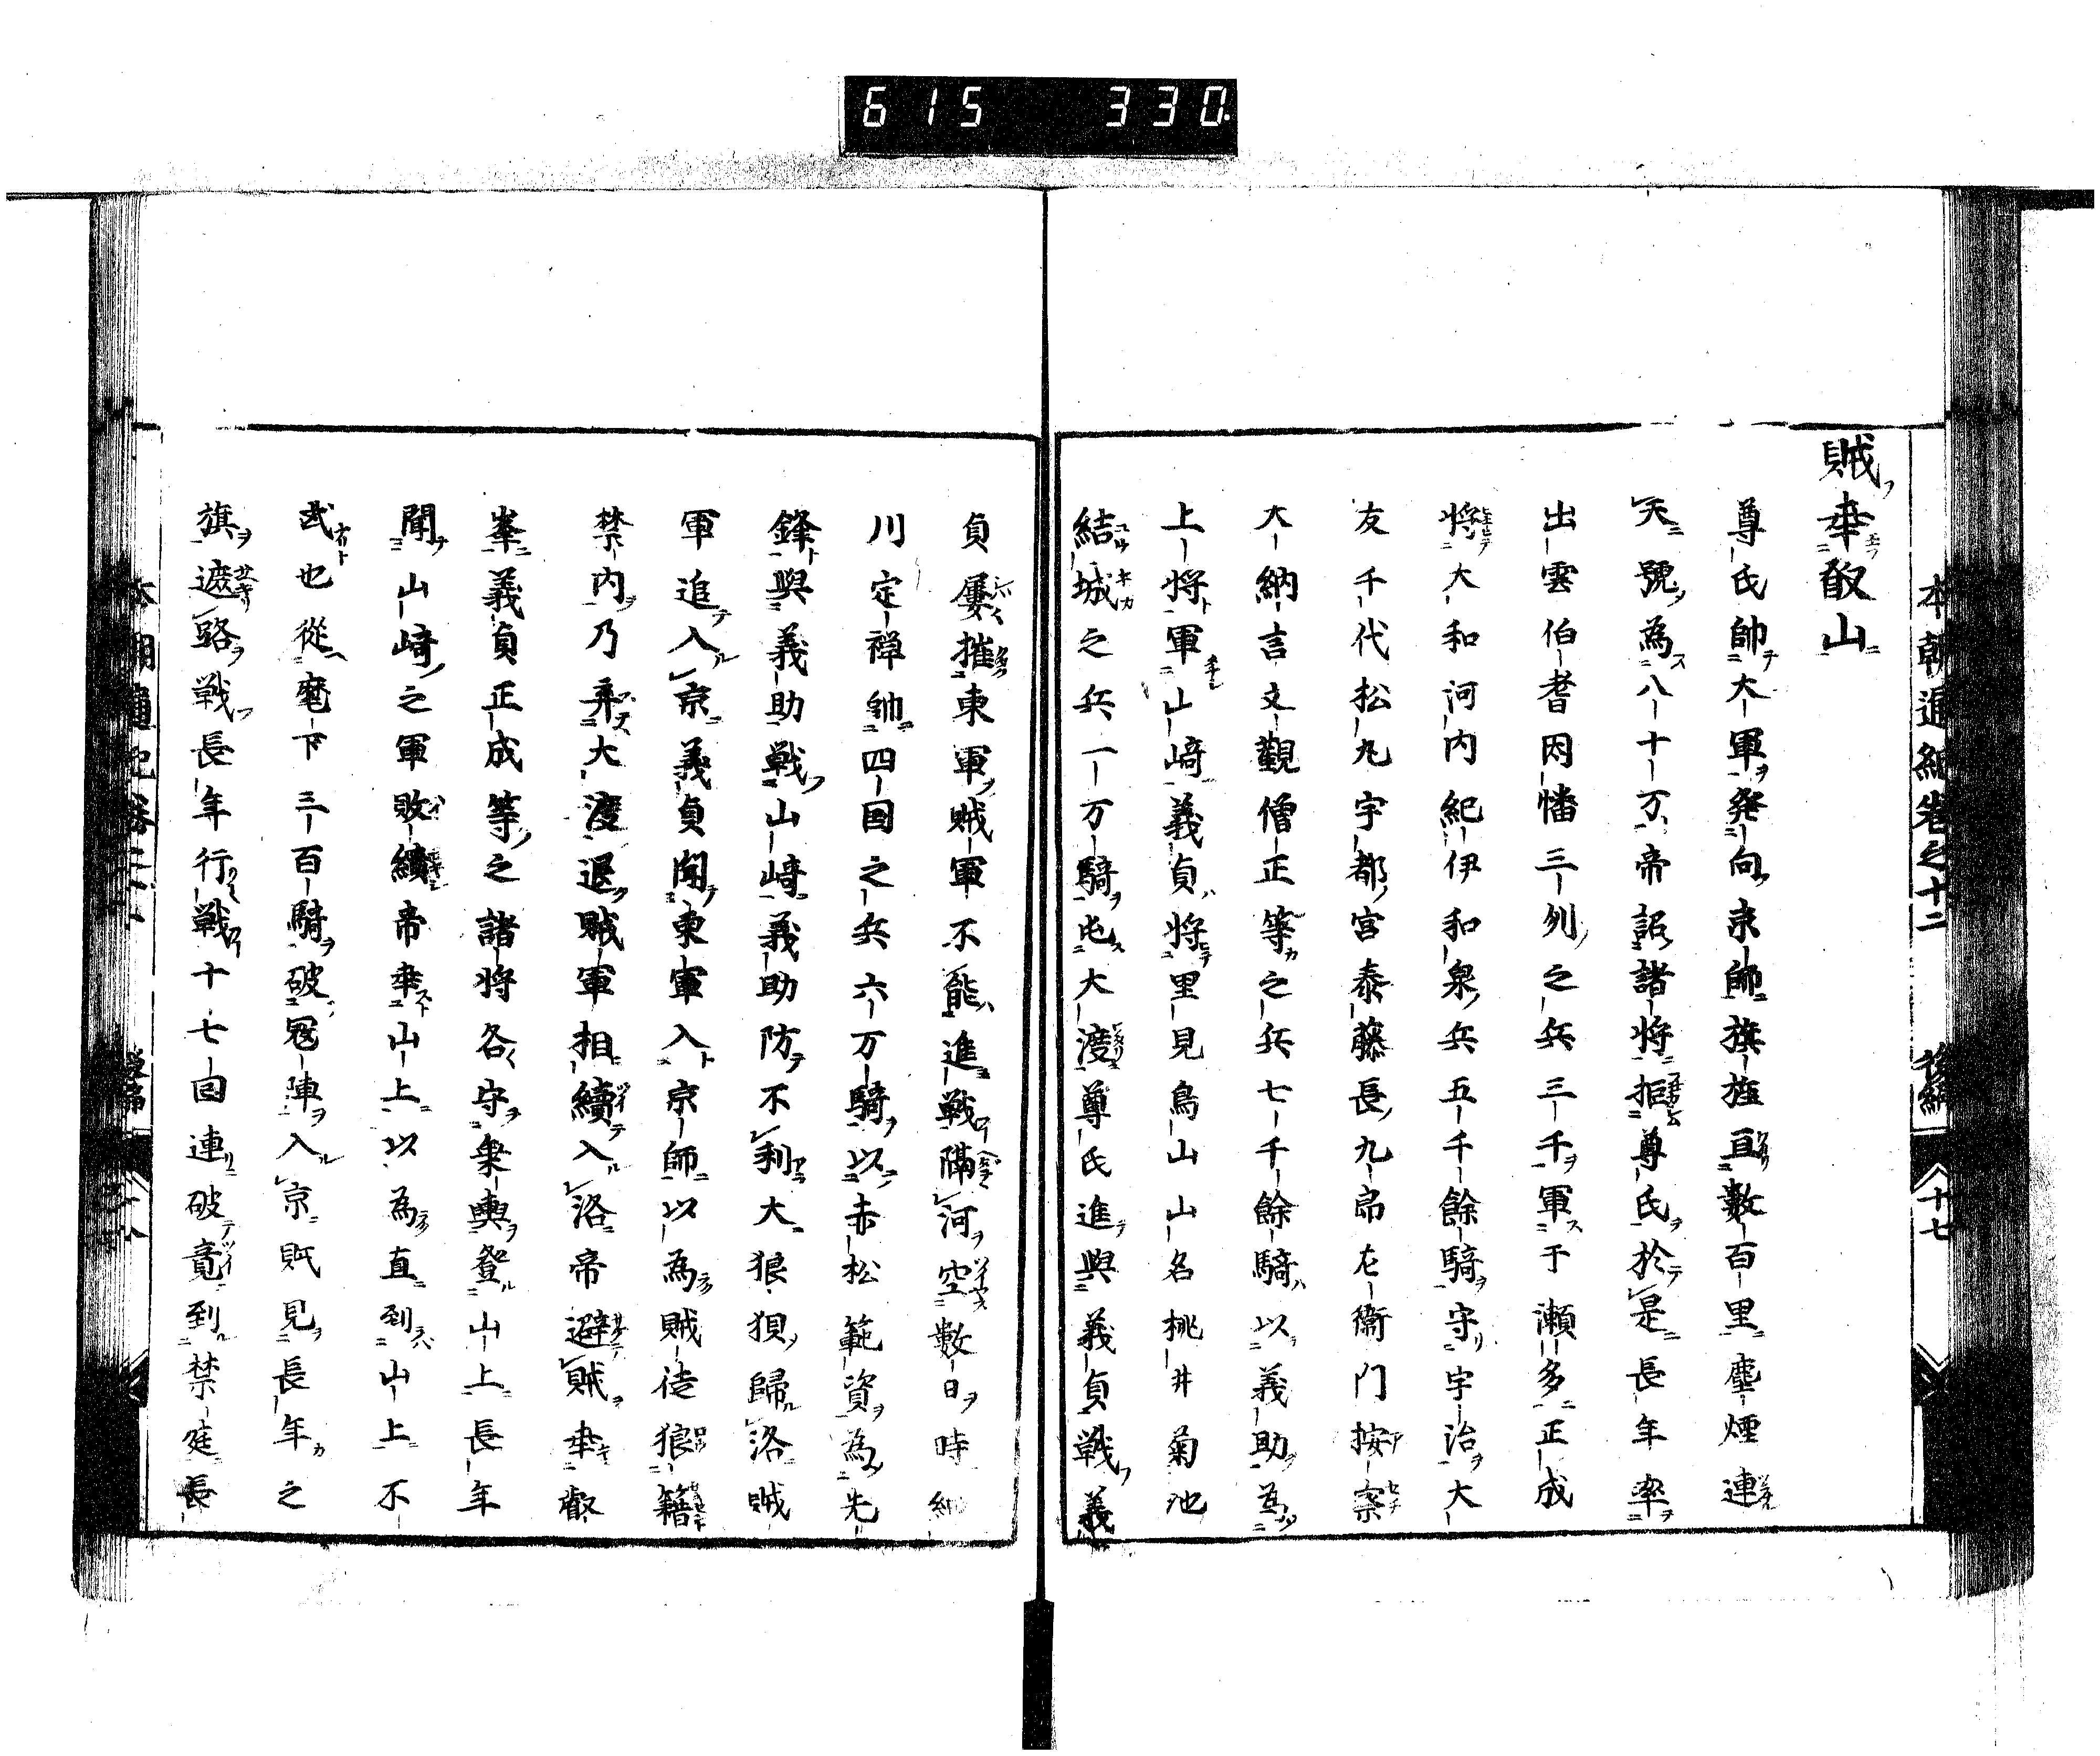 615 330
本朝通紀卷之十二 後編 十七
賊幸叡山
尊氏帥大軍発向京師旗旌亘數百里塵煙連
天號為八十万帝詔諸将拒尊氏於是長年率
出雲伯耆因幡三列之兵三千軍于瀬多正成
将大和河内紀伊和泉兵五千餘騎守宇治大
友千代松丸宇都宮泰藤長九郎左衞门按察
大納言文觀僧正等之兵七千餘騎以義助為
上将軍山﨑義貞将里見鳥山山名桃井菊池
結城之兵一万騎屯大渡尊氏進與義貞戦義
貞屢摧東軍賊軍不能進戦隔河空數日時細
川定禅帥四国之兵六万騎以赤松範資為先
鋒與義助戦山﨑義助防不利大狼狽歸洛賊
軍追入京義貞聞東軍入京師以為賊徒狼籍
禁内乃棄大渡退賊軍相續入洛帝避賊幸叡
峯義貞正成等之諸将各守衆輿登山上長年
聞山﨑之軍敗績帝幸山上以為直到山上不
武也從麾下三百騎破冦陣入京賊見長年之
旗遮路戦長年行戦十七回連破竟到禁庭長